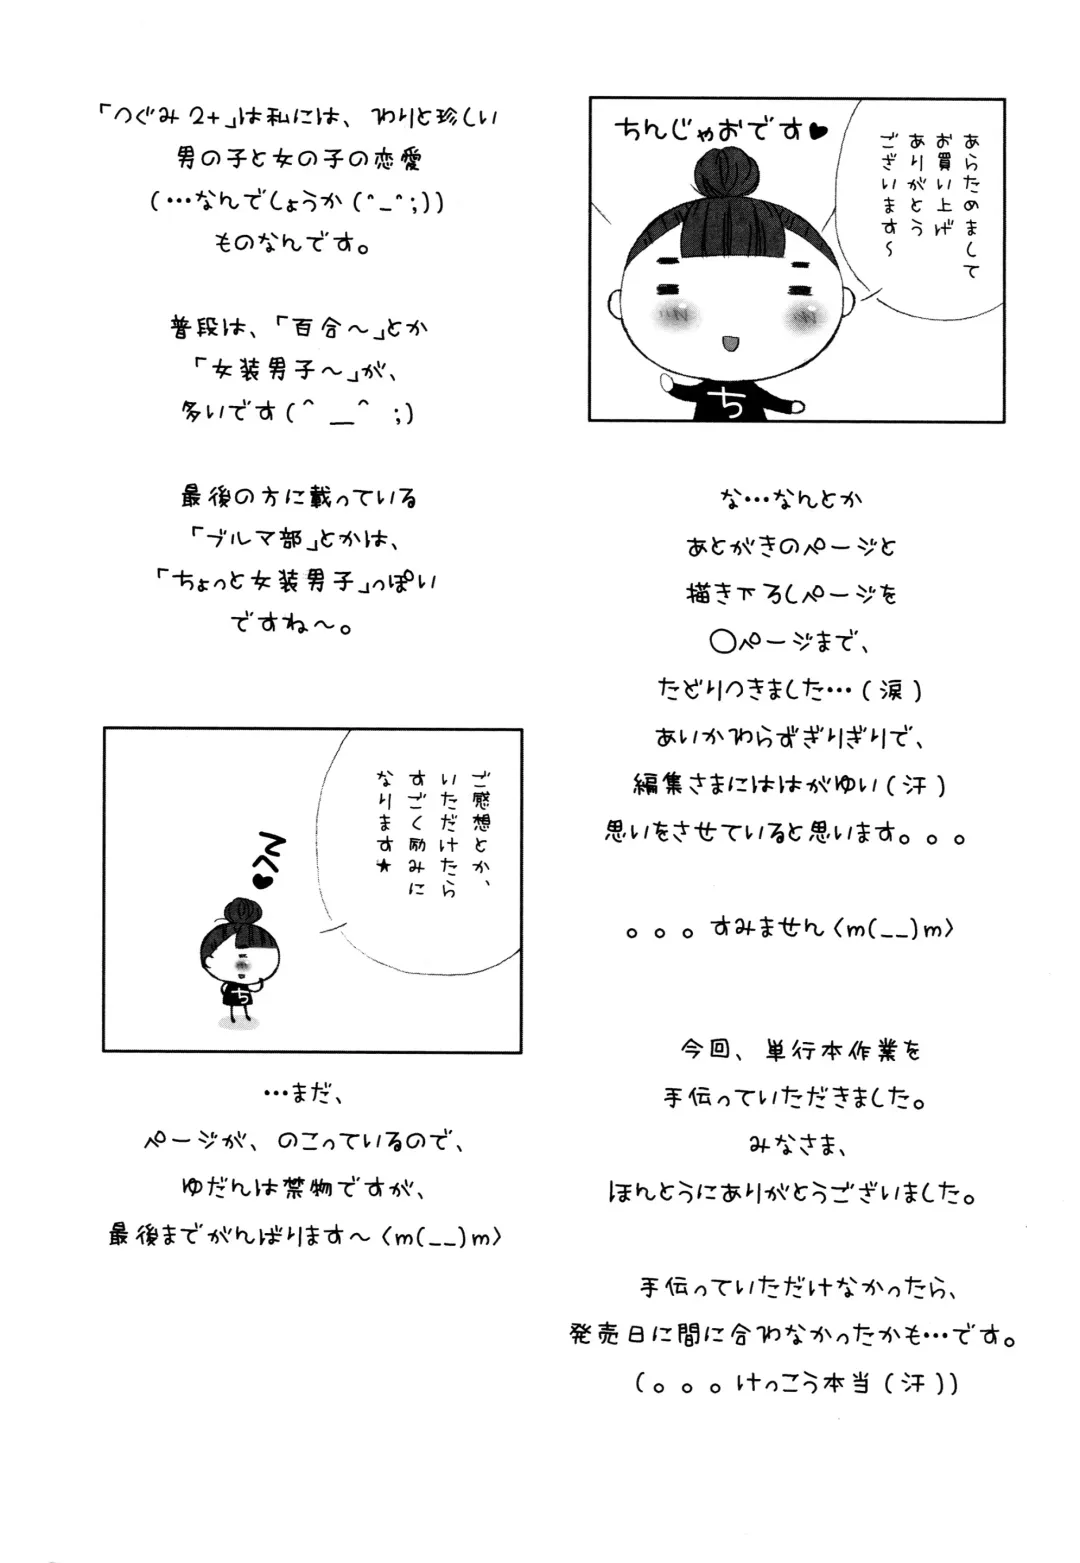 ちんじゃおです♥
あらためまして
お買い上げ
ありがとう
ございます～
な…なんとか
あとがきのページと
描き下ろしページを
〇ページまで、
たどりつきました…(涙)
あいかわらずぎりぎりで、
編集さまにははがゆい(汗)
思いをさせていると思います。。。
。。。すみません<m(__)m>
今回、単行本作業を
手伝っていただきました。
みなさま、
ほんとうにありがとうございました。
手伝っていただけなかったら、
発売日に間に合わなかったかも…です。
(。。。けっこう本当(汗))
ち
「つぐみ2+」は私には、わりと珍しい
男の子と女の子の恋愛
(…なんでしょうか(^_^;))
ものなんです。
普段は、「百合～」とか
「女装男子～」が、
多いです(^ __^ ;)
最後の方に載っている
「ブルマ部」とかは、
「ちょっと女装男子」っぽい
ですね～。
ご感想とか、
いただけたら
すごく励みに
なります★
ち
…まだ、
ページが、のこっているので、
ゆだんは禁物ですが、
最後までがんばります～<m(__)m>